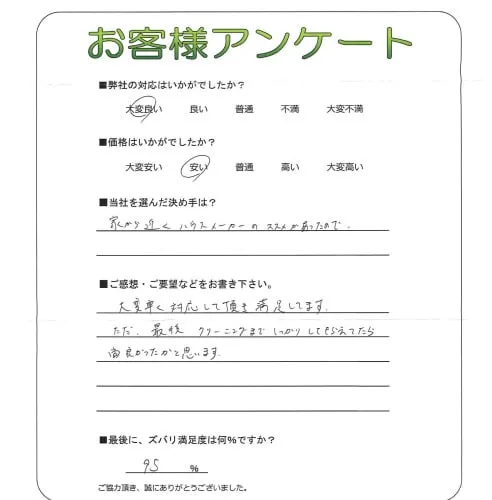 お客様アンケート
■弊社の対応はいかがでしたか？
大変良い 良い 普通 不満 大変不満
■価格はいかがでしたか？
大変安い 安い 普通 高い 大変高い
■当社を選んだ決め手は？
家から近く ハウスメーカーのススメがあったので.
■ご感想・ご要望などをお書き下さい。
大変早く対応して頂き満足してます.
ただ、最後 クリーニングまでしっかりしてもらえてたら
尚良かったかと思います.
■最後に、ズバリ満足度は何%ですか？
95 %
ご協力頂き、誠にありがとうございました。